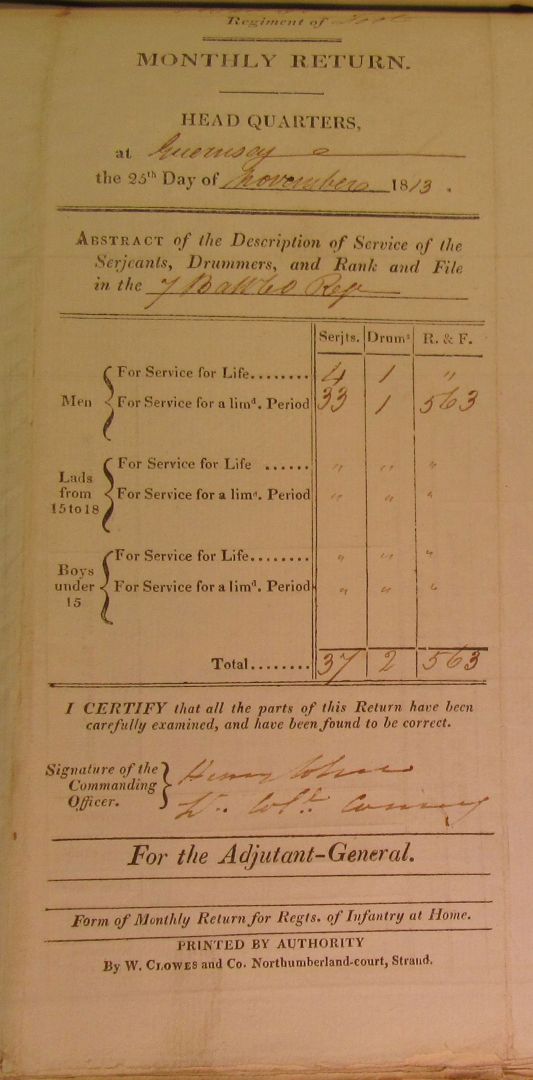 Regiment of Foot
MONTHLY RETURN.
HEAD QUARTERS,
at Guernsey
the 25th Day of November 1813.
ABSTRACT of the Description of Service of the
Serjeants, Drummers, and Rank and File
in the 7 Batt 60 Reg
Serjts. Drums R. & F.
Men { For Service for Life........ 4 1 "
For Service for a limd. Period 33 1 563
Lads from 15 to 18 { For Service for Life ...... " " "
For Service for a limd. Period " " "
Boys under 15 { For Service for Life........ " " "
For Service for a limd. Period " " "
Total........ 37 2 563
I CERTIFY that all the parts of this Return have been
carefully examined, and have been found to be correct.
Signature of the Commanding Officer. } Henry John
Lt. Coll. Comg
For the Adjutant-General.
Form of Monthly Return for Regts. of Infantry at Home.
PRINTED BY AUTHORITY
By W. CLOWES and Co. Northumberland-court, Strand.